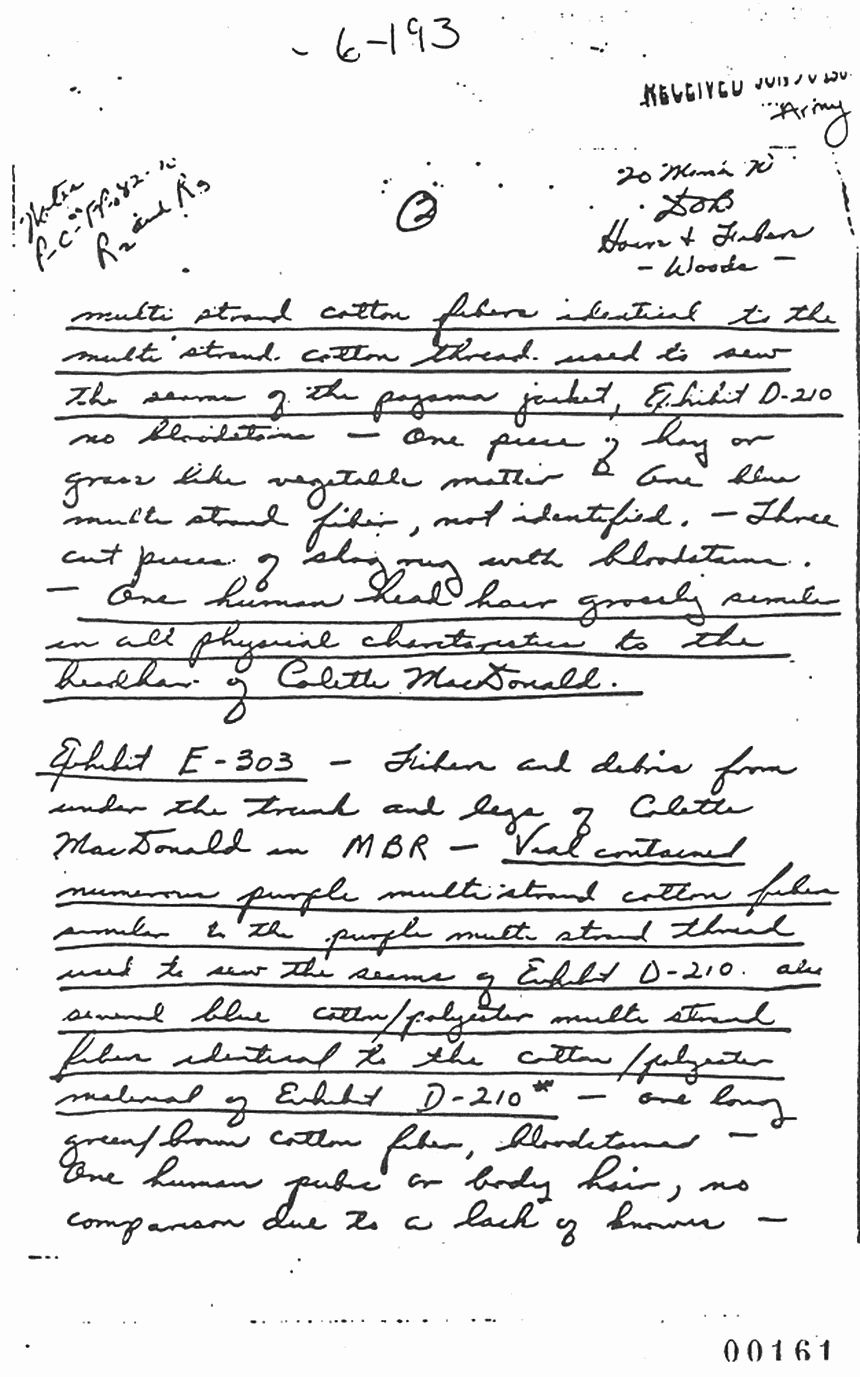 - 6-193
RECEIVED
Army
Notes
P-C-FP-82-70
R2 and R3
2
DOB
Hairs & Fibers
- Woods -
multi strand cotton fibers identical to the
multi strand cotton thread used to sew
the seams of the pajama jacket, Exhibit D-210
no bloodstains - One piece of hay or
grass like vegetable matter - One blue
multi strand fiber, not identified. - Three
cut pieces of shag rug with bloodstains.
- One human head hair grossly similar
in all physical charctoristics to the
headhair of Colette MacDonald.
Exhibit E-303 - Fibers and debris from
under the trunk and legs of Colette
MacDonald in MBR - Vial contained
numerous purple multi strand cotton fibers
similar to the purple multi strand thread
used to sew the seams of Exhibit D-210. also
several blue cotton/polyester multi strand
fibers identical to the cotton/polyester
material of Exhibit D-210* - one long
green/brown cotton fiber, bloodstained -
One human pubic or body hair, no
comparison due to a lack of knowns -
00161